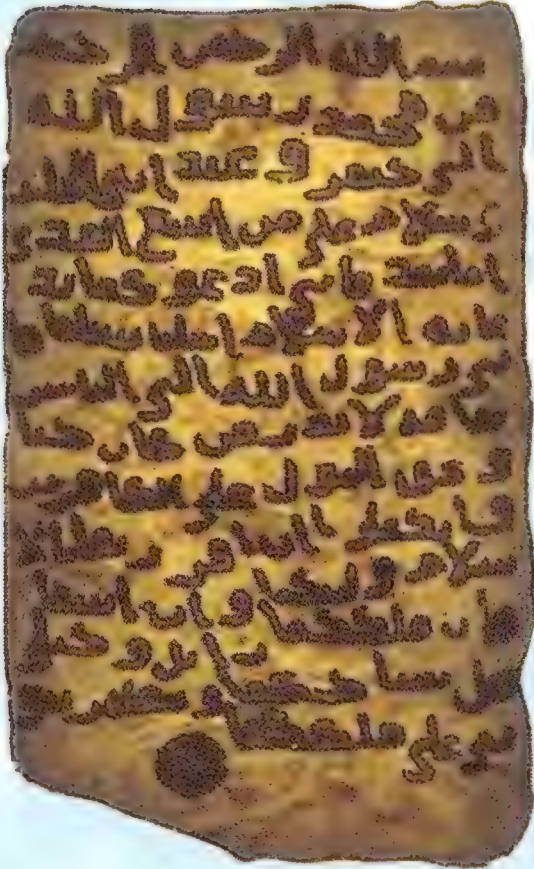 بسم الله الرحمن الرحيم
من محمد رسول الله
الى جيفر و عبد ابني الجلند
ى سلام على من اتبع الهدى
اما بعد فاني ادعوكما بد
عايه الاسلام اسلما تسلما فا
ني رسول الله الى الناس
كافه لانذر من كان حيا
و يحق القول على الكافرين
فانكما ان اقررتما بالا
سلام وليتكما و ان ابيتما
فان ملككما زايل و خيلي
تحل بساحتكما و تظهر نبو
تي على ملككما